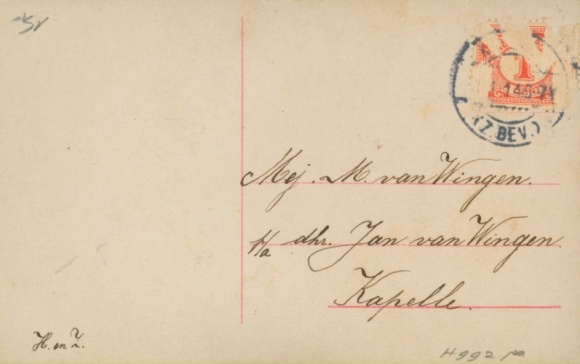 1
(Z.BEV.)
Mej. M. van Wingen.
p/a dhr. Jan van Wingen
Kapelle.
H. en Z.
H992